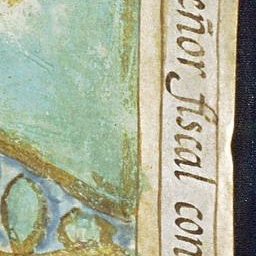 eñor fiscal con